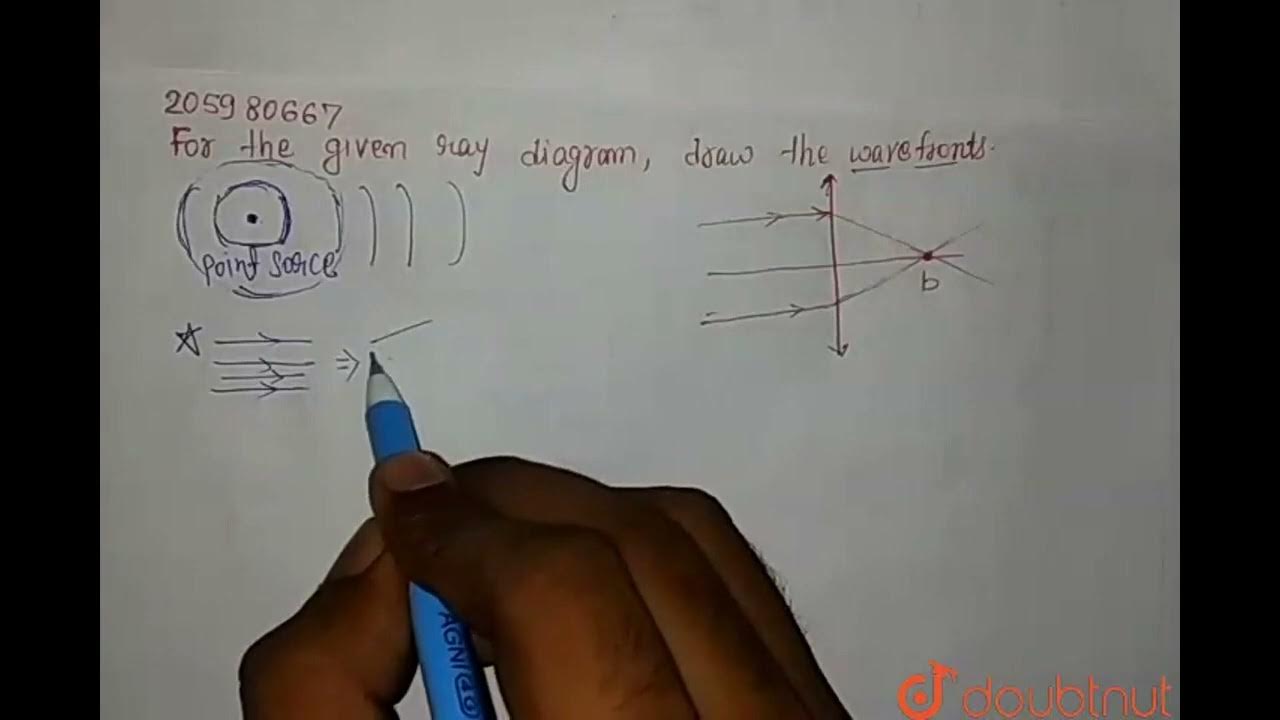 205980667
For the given ray diagram, draw the wavefronts.
Point Sorce
b
AGNI
doubtnut